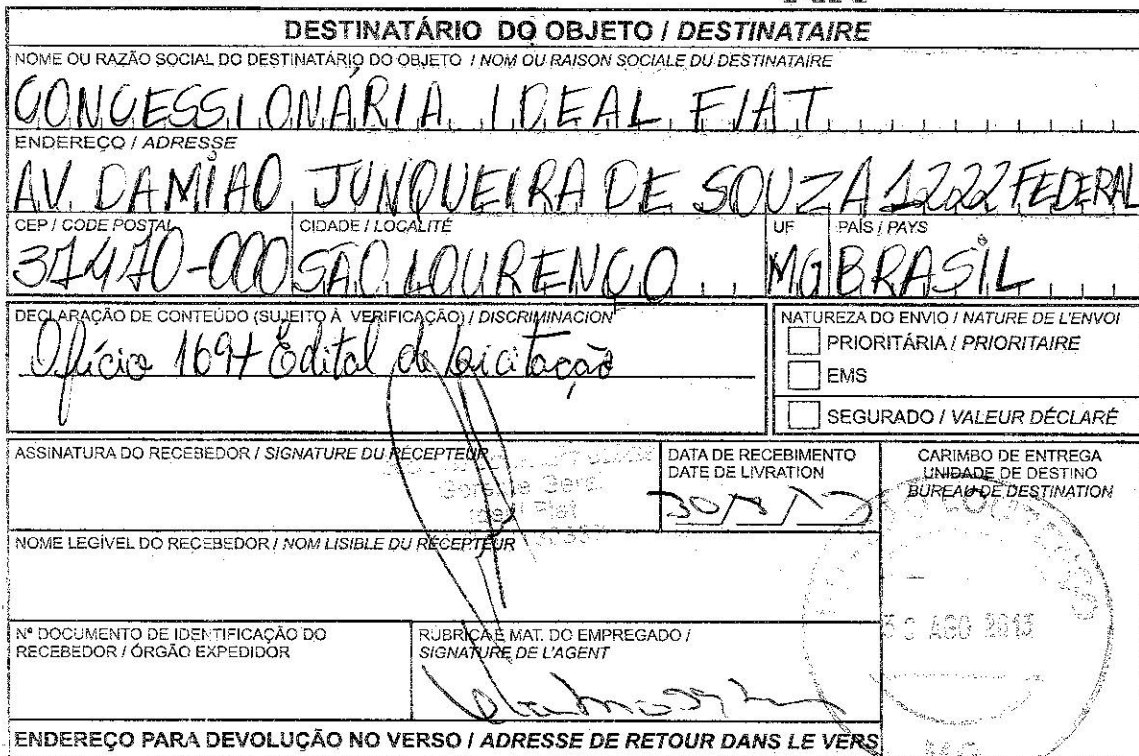 DESTINATÁRIO DO OBJETO / DESTINATAIRE
NOME OU RAZÃO SOCIAL DO DESTINATÁRIO DO OBJETO / NOM OU RAISON SOCIALE DU DESTINATAIRE
CONCESSIONÁRIA IDEAL FIAT
ENDEREÇO / ADRESSE
AV. DAMIAO JUNQUEIRA DE SOUZA 1222 FEDERAL
CEP / CODE POSTAL CIDADE / LOCALITÉ UF PAÍS / PAYS
37470-000 SÃO LOURENÇO MG BRASIL
DECLARAÇÃO DE CONTEÚDO (SUJEITO À VERIFICAÇÃO) / DISCRIMINACION
NATUREZA DO ENVIO / NATURE DE L'ENVOI
Ofício 169+ Edital de Licitação
PRIORITÁRIA / PRIORITAIRE
EMS
SEGURADO / VALEUR DÉCLARÉ
ASSINATURA DO RECEBEDOR / SIGNATURE DU RÉCEPTEUR
Gerente Geral
Ideal Fiat
DATA DE RECEBIMENTO
DATE DE LIVRATION
30/8/13
CARIMBO DE ENTREGA
UNIDADE DE DESTINO
BUREAU DE DESTINATION
SÃO LOURENÇO
30 AGO 2013
MG
NOME LEGÍVEL DO RECEBEDOR / NOM LISIBLE DU RÉCEPTEUR
Nº DOCUMENTO DE IDENTIFICAÇÃO DO
RECEBEDOR / ÓRGÃO EXPEDIDOR
RUBRICA E MAT. DO EMPREGADO /
SIGNATURE DE L'AGENT
ENDEREÇO PARA DEVOLUÇÃO NO VERSO / ADRESSE DE RETOUR DANS LE VERS